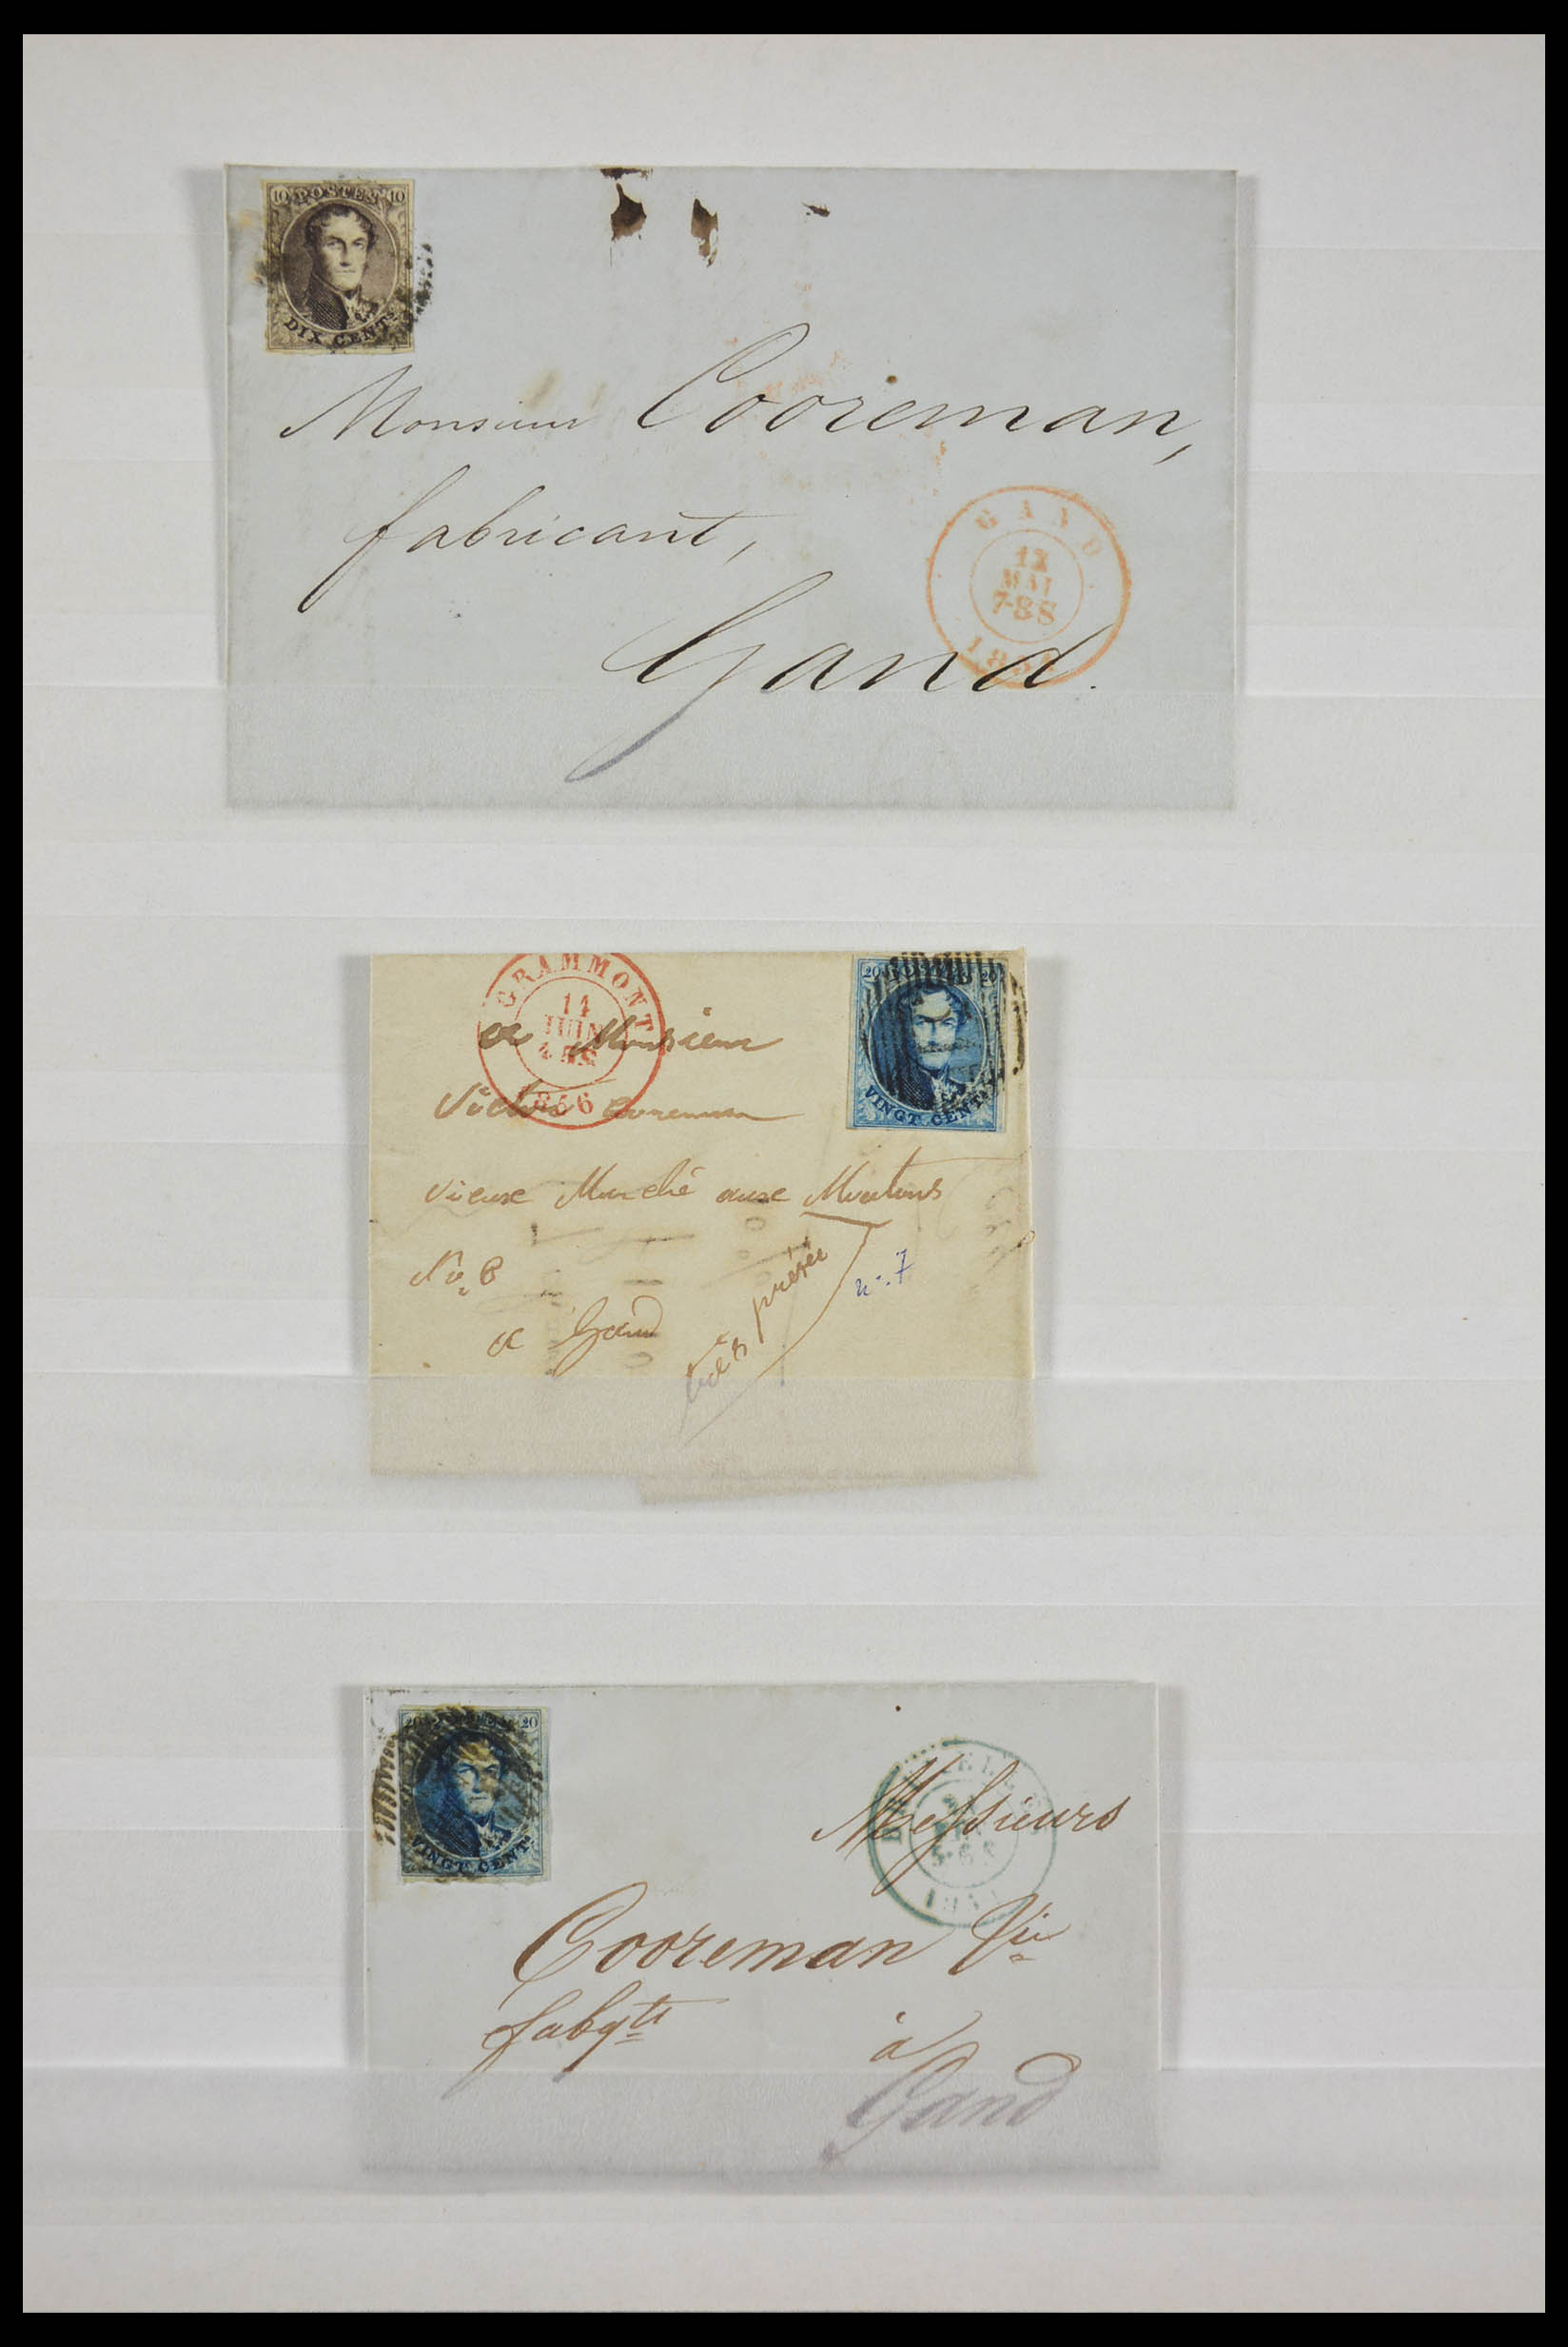 10 POSTES 10
DIX CENTS
Monsieur Cooreman,
fabricant,
Gand.
GAND
12
MAI
7-8S
GRAMMONT
14
JUIN
4-5S
1856
20 POSTES 20
VINGT CENTS
a Monsieur
Victor Cooreman
Vieux Marché aux Moutons
No. 6
a Gand
très pressée
n°. 7
20 20
VINGT CENTS
Messieurs
Cooreman
fabqts
à
Gand